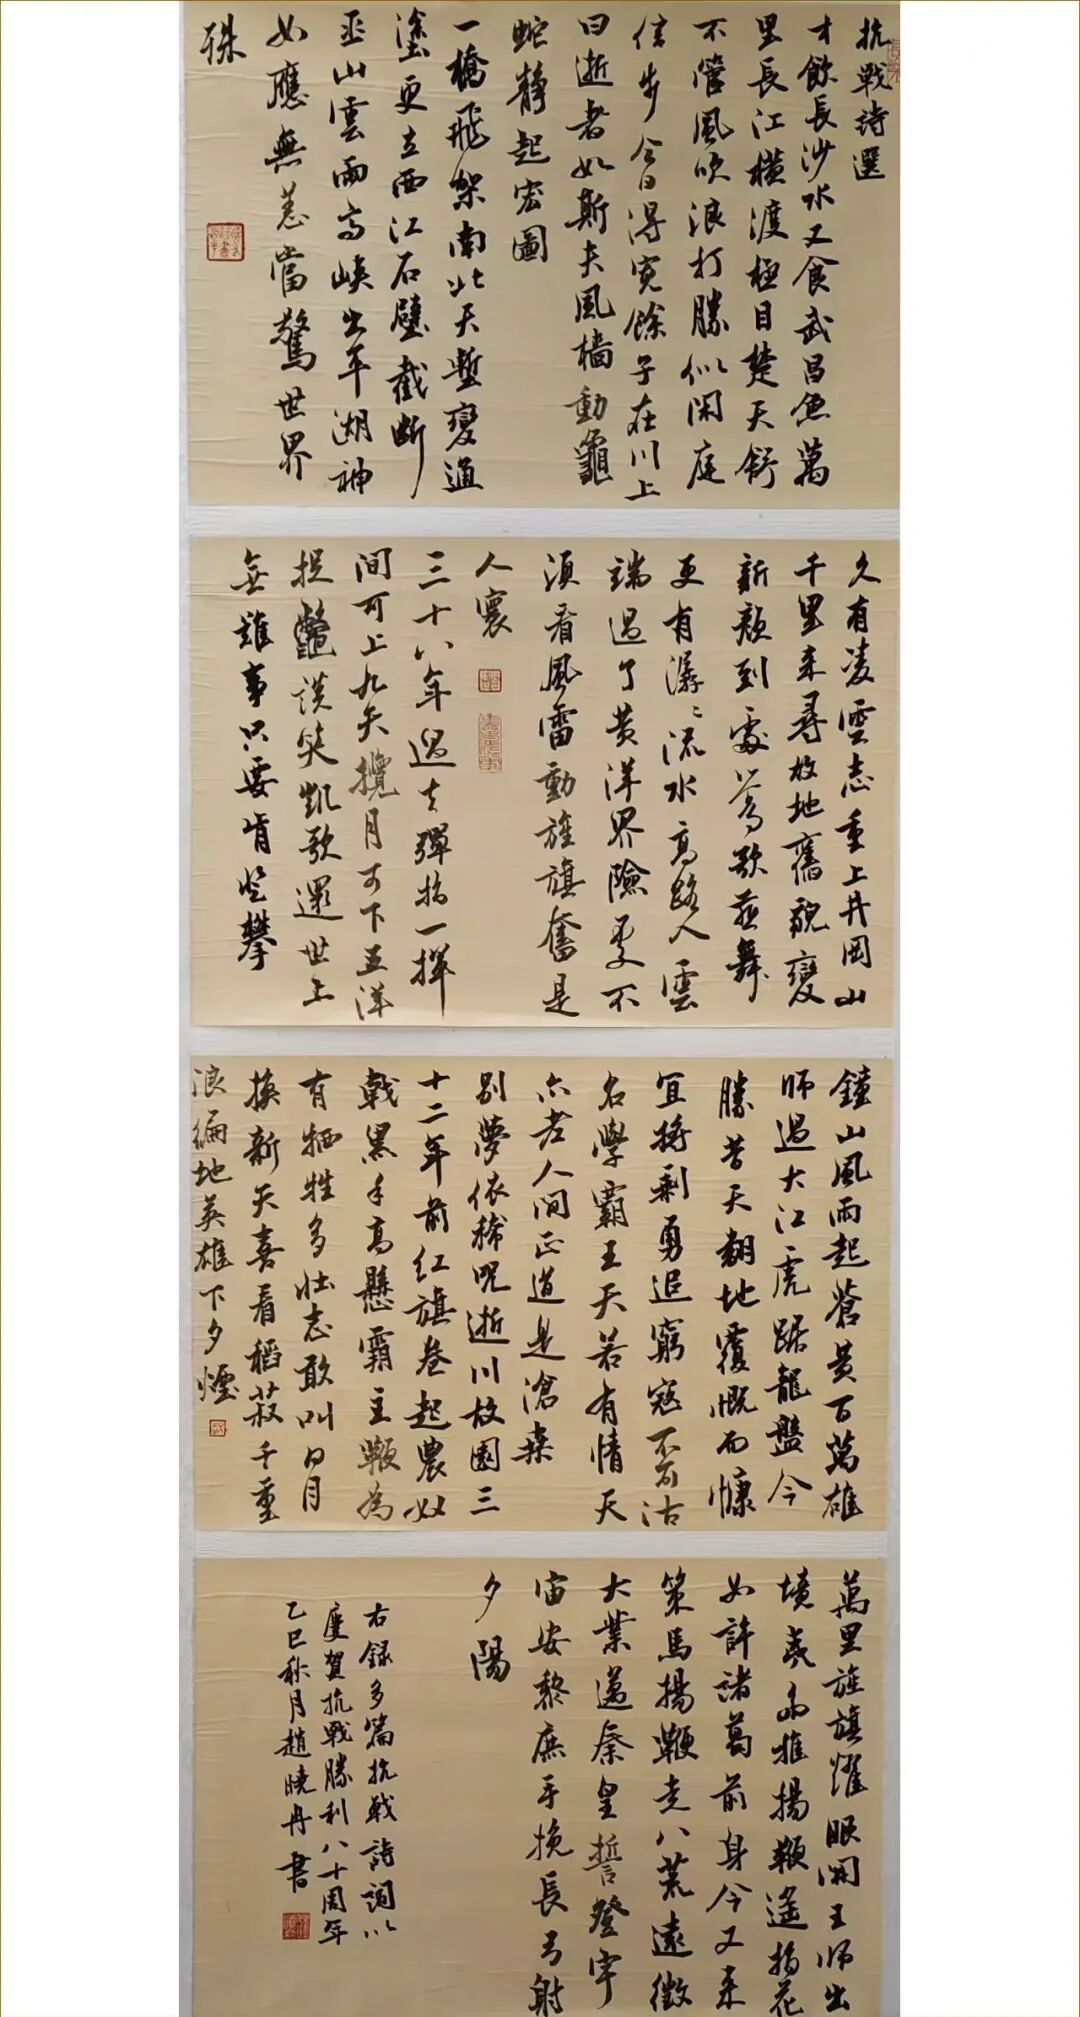 抗戰詩選
才飲長沙水又食武昌魚萬
里長江橫渡極目楚天舒
不管風吹浪打勝似閑庭
信步今日得寬餘子在川上
曰逝者如斯夫風檣動龜
蛇靜起宏圖
一橋飛架南北天塹變通
塗更立西江石壁截斷
巫山雲雨高峽出平湖神
女應無恙當驚世界
殊
久有凌雲志重上井岡山
千里來尋故地舊貌變
新顏到處鶯歌燕舞
更有潺〻流水高路入雲
端過了黃洋界險處不
須看風雷動旌旗奮是
人寰
三十八年過去彈指一揮
間可上九天攬月可下五洋
捉鱉談笑凱歌還世上
無難事只要肯登攀
鐘山風雨起蒼黃百萬雄
師過大江虎踞龍盤今
勝昔天翻地覆慨而慷
宜將剩勇追窮寇不可沽
名學霸王天若有情天
亦老人間正道是滄桑
別夢依稀咒逝川故園三
十二年前紅旗卷起農奴
戟黑手高懸霸主鞭為
有牺牲多壯志敢叫日月
換新天喜看稻菽千重
浪編地英雄下夕煙
萬里旌旗耀眼開王師出
境夷島摧揚鞭遙指花
如許諸葛前身今又來
策馬揚鞭走八荒遠徵
大業邁秦皇誓登宇
宙安黎庶手挽長弓射
夕陽
右錄多篇抗戰詩詞以
慶賀抗戰勝利八十周年
乙巳秋月趙曉丹書